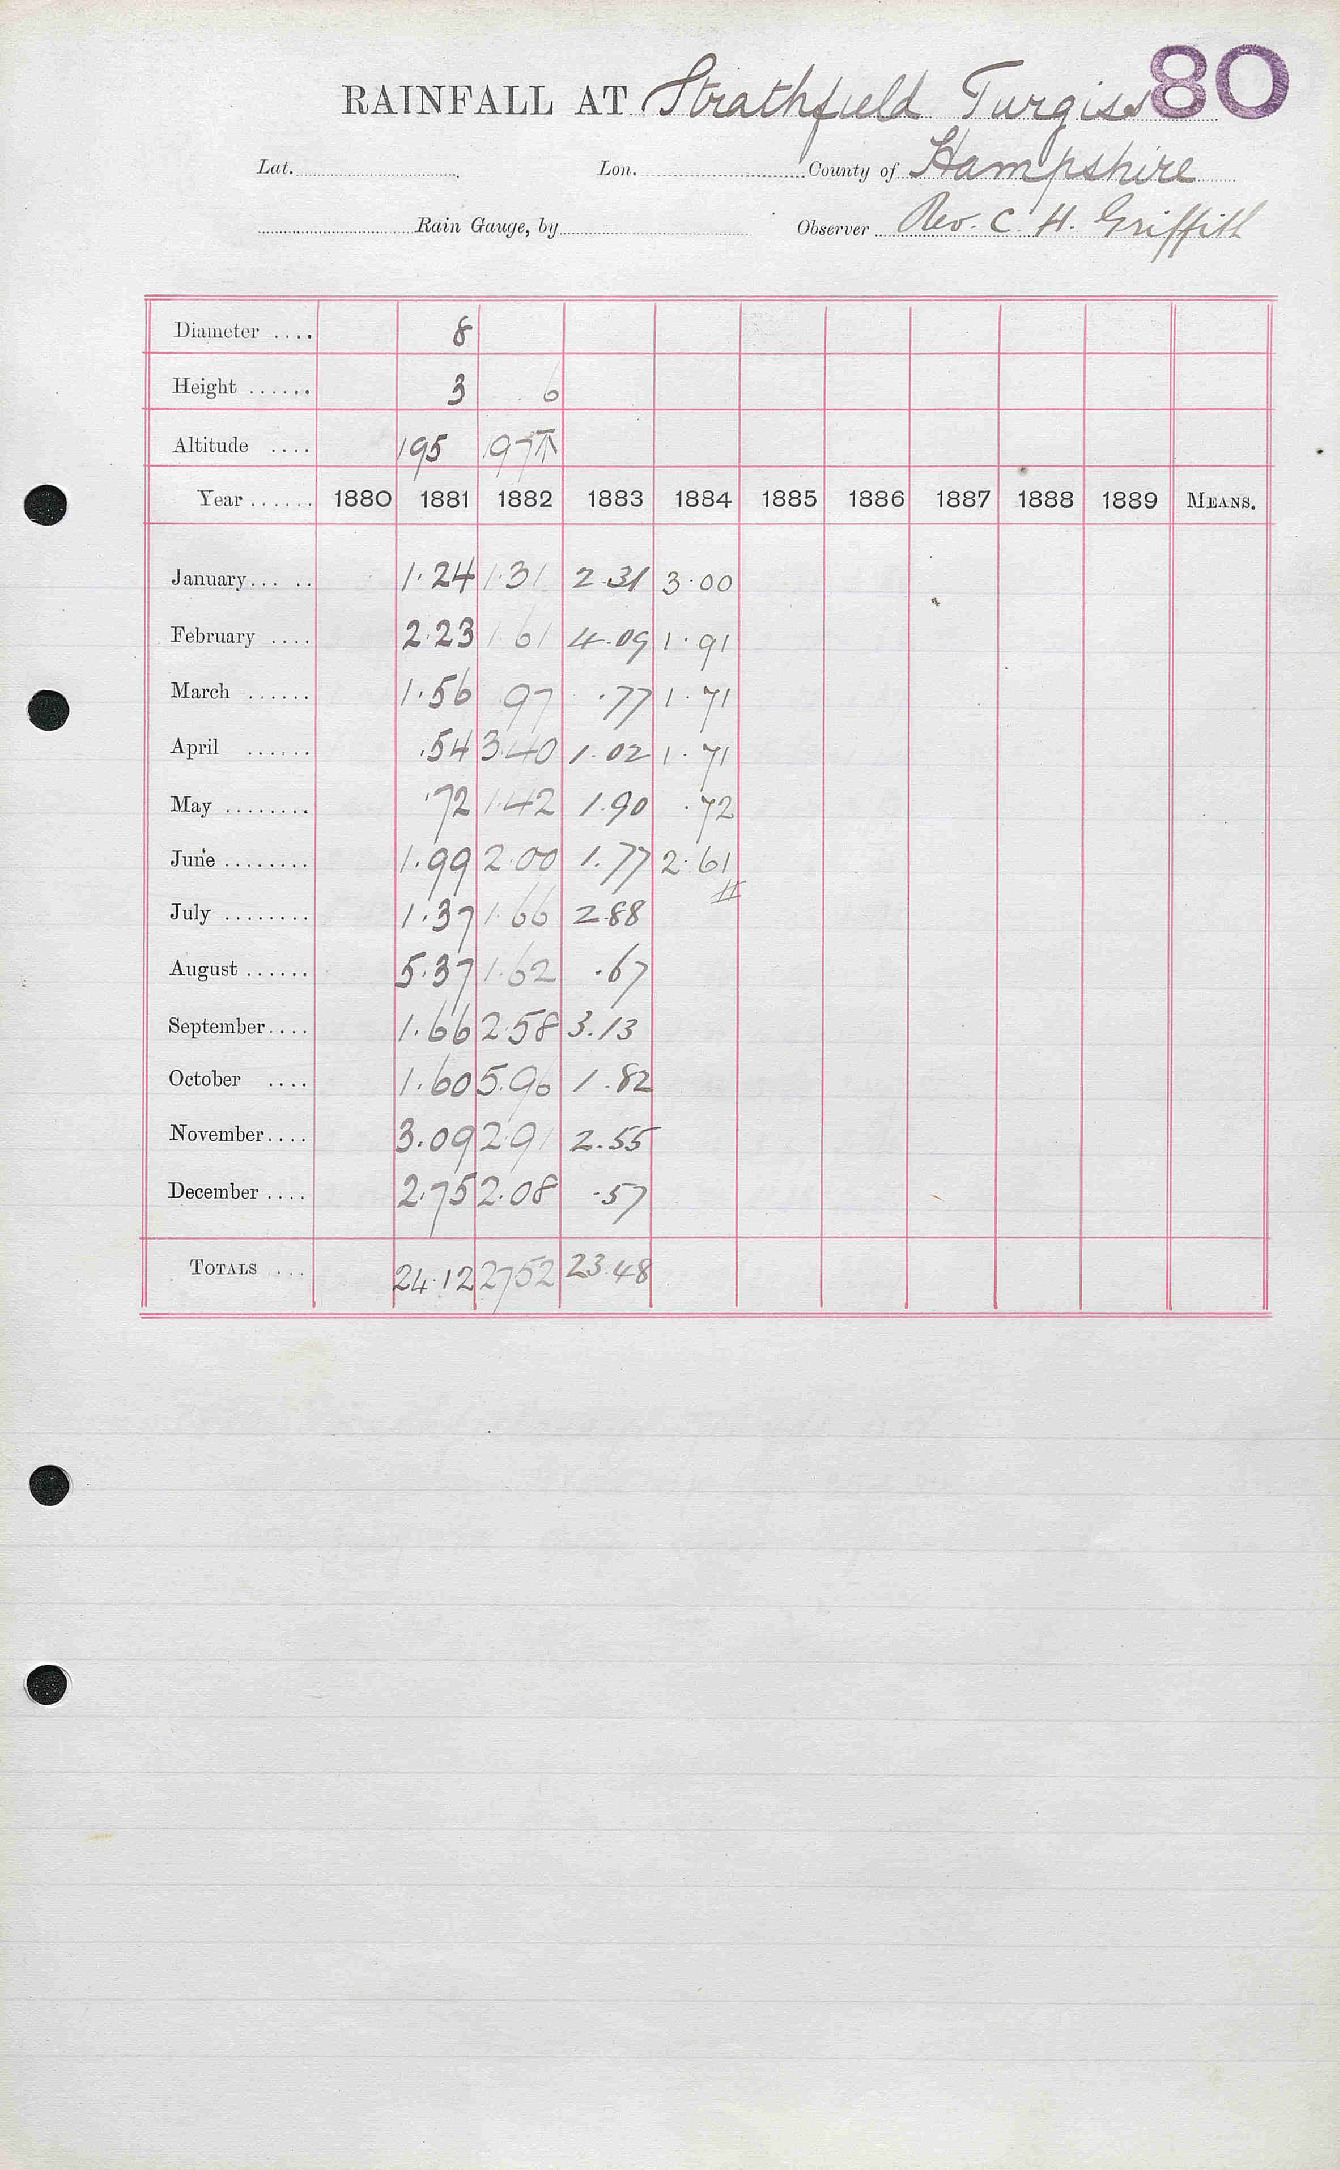 RAINFALL AT Strathfield Turgiss 80
Lat. Lon. County of Hampshire
Rain Gauge, by Observer Rev. C. H. Griffith
Diameter .... 8
Height ...... 3 6
Altitude .... 195 197 T
Year ...... 1880 1881 1882 1883 1884 1885 1886 1887 1888 1889 MEANS.
January... .. 1.24 1.31 2.31 3.00
February .... 2.23 1.61 4.09 1.91
March ...... 1.56 97 .77 1.71
April ...... .54 3.40 1.02 1.71
May ........ .72 1.42 1.90 .72
June ........ 1.99 2.00 1.77 2.61
July ........ 1.37 1.66 2.88
August ...... 5.37 1.62 .67
September.... 1.66 2.58 3.13
October .... 1.60 5.96 1.82
November.... 3.09 2.91 2.55
December .... 2.75 2.08 .57
TOTALS ... 24.12 27 52 23.48